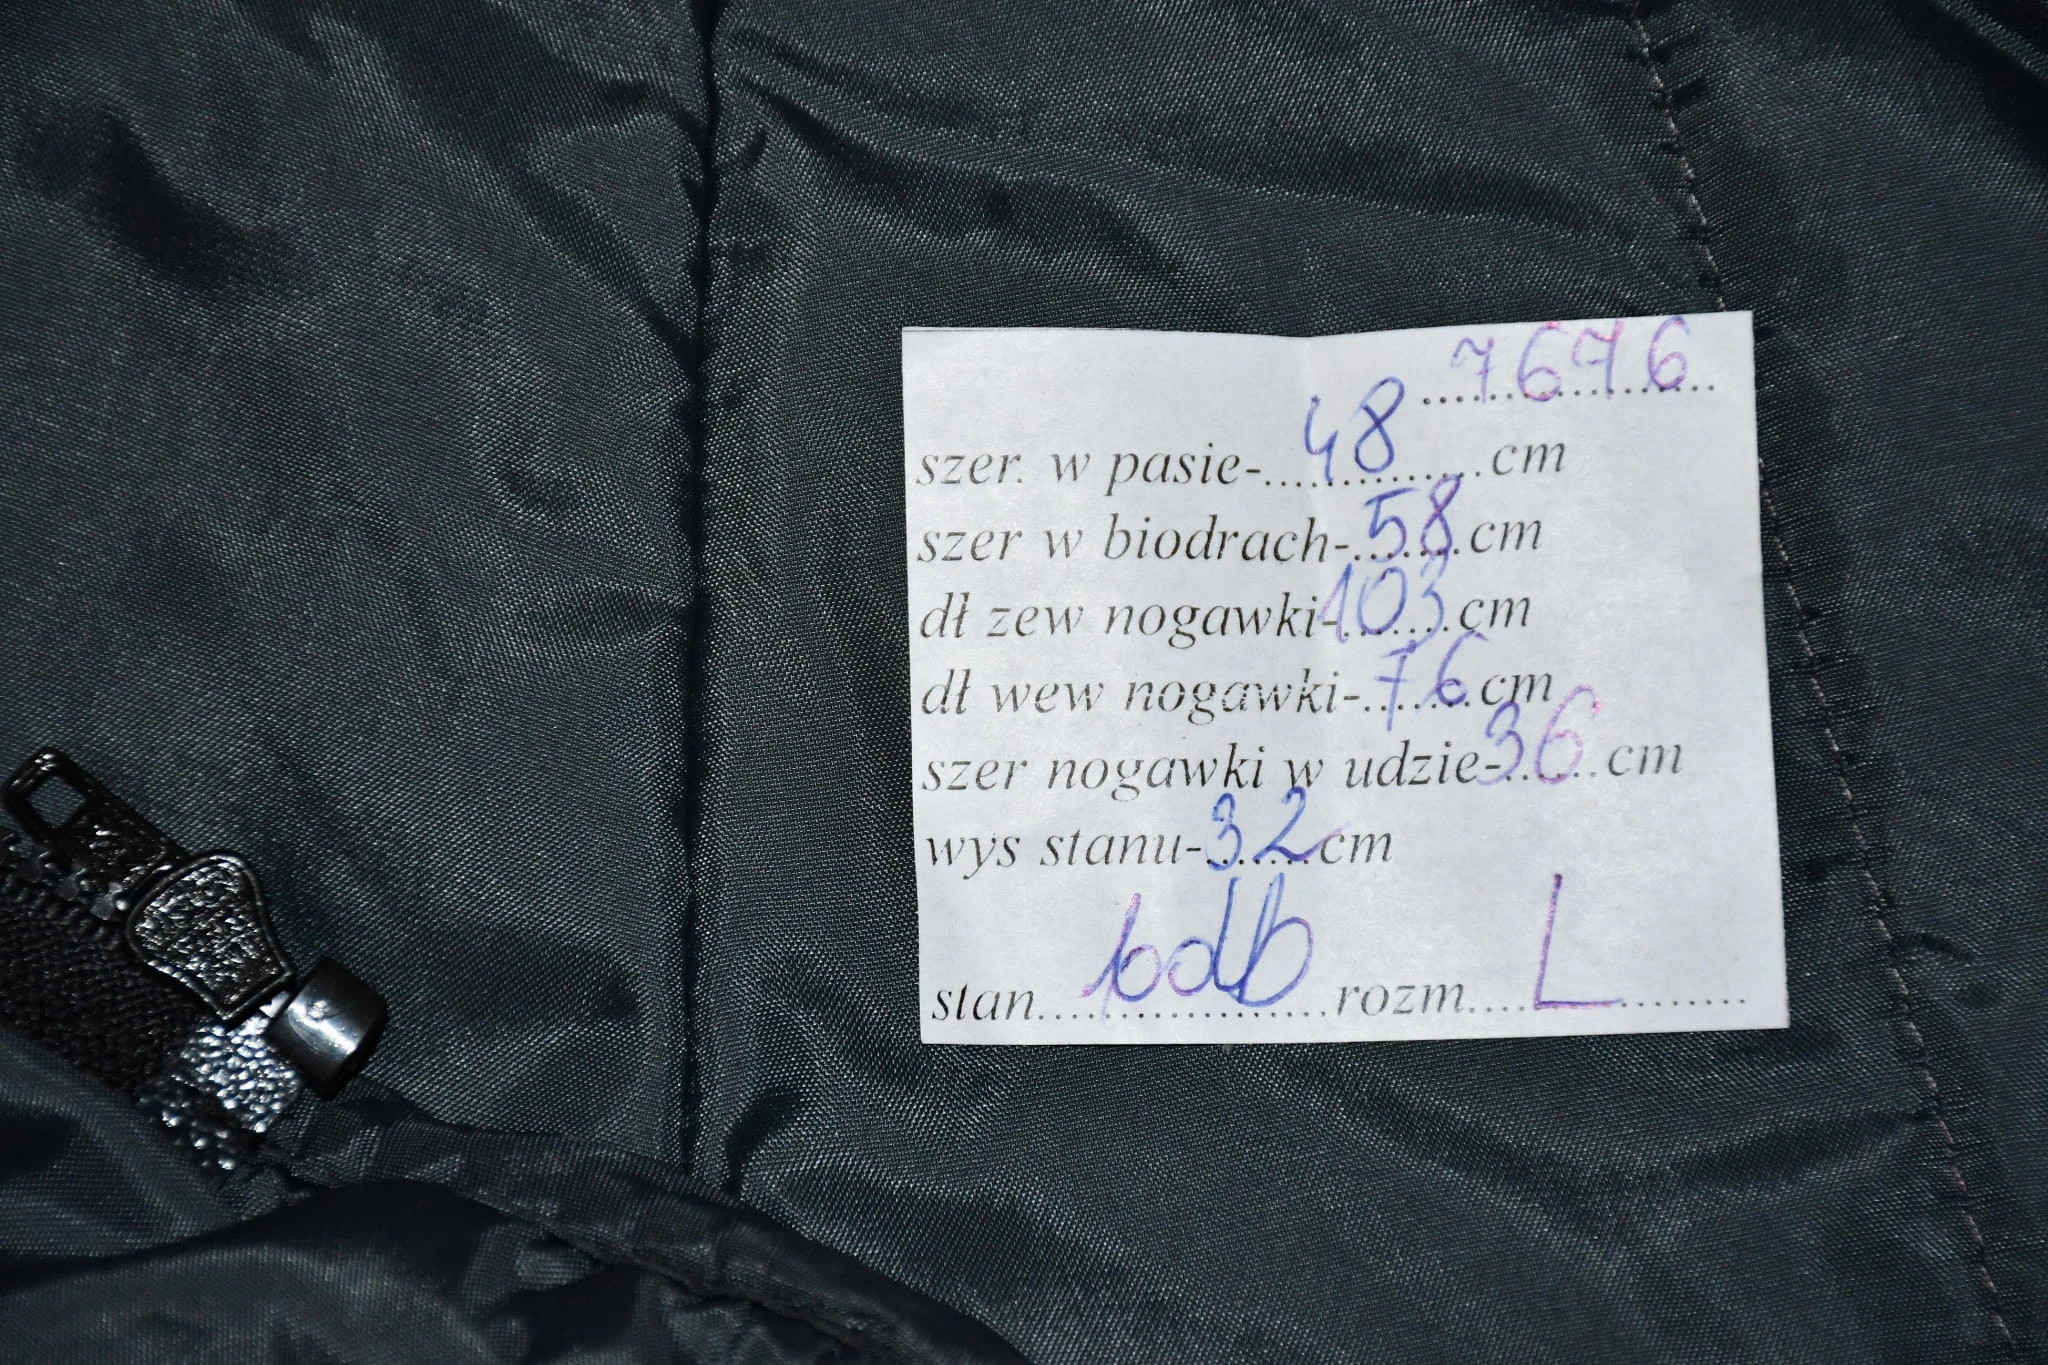 ....7676....
szer. w pasie-....48....cm
szer w biodrach-..58..cm
dł zew nogawki-103cm
dł wew nogawki-..76..cm
szer nogawki w udzie-36..cm
wys stanu-..32..cm
stan....bdb....rozm....L........